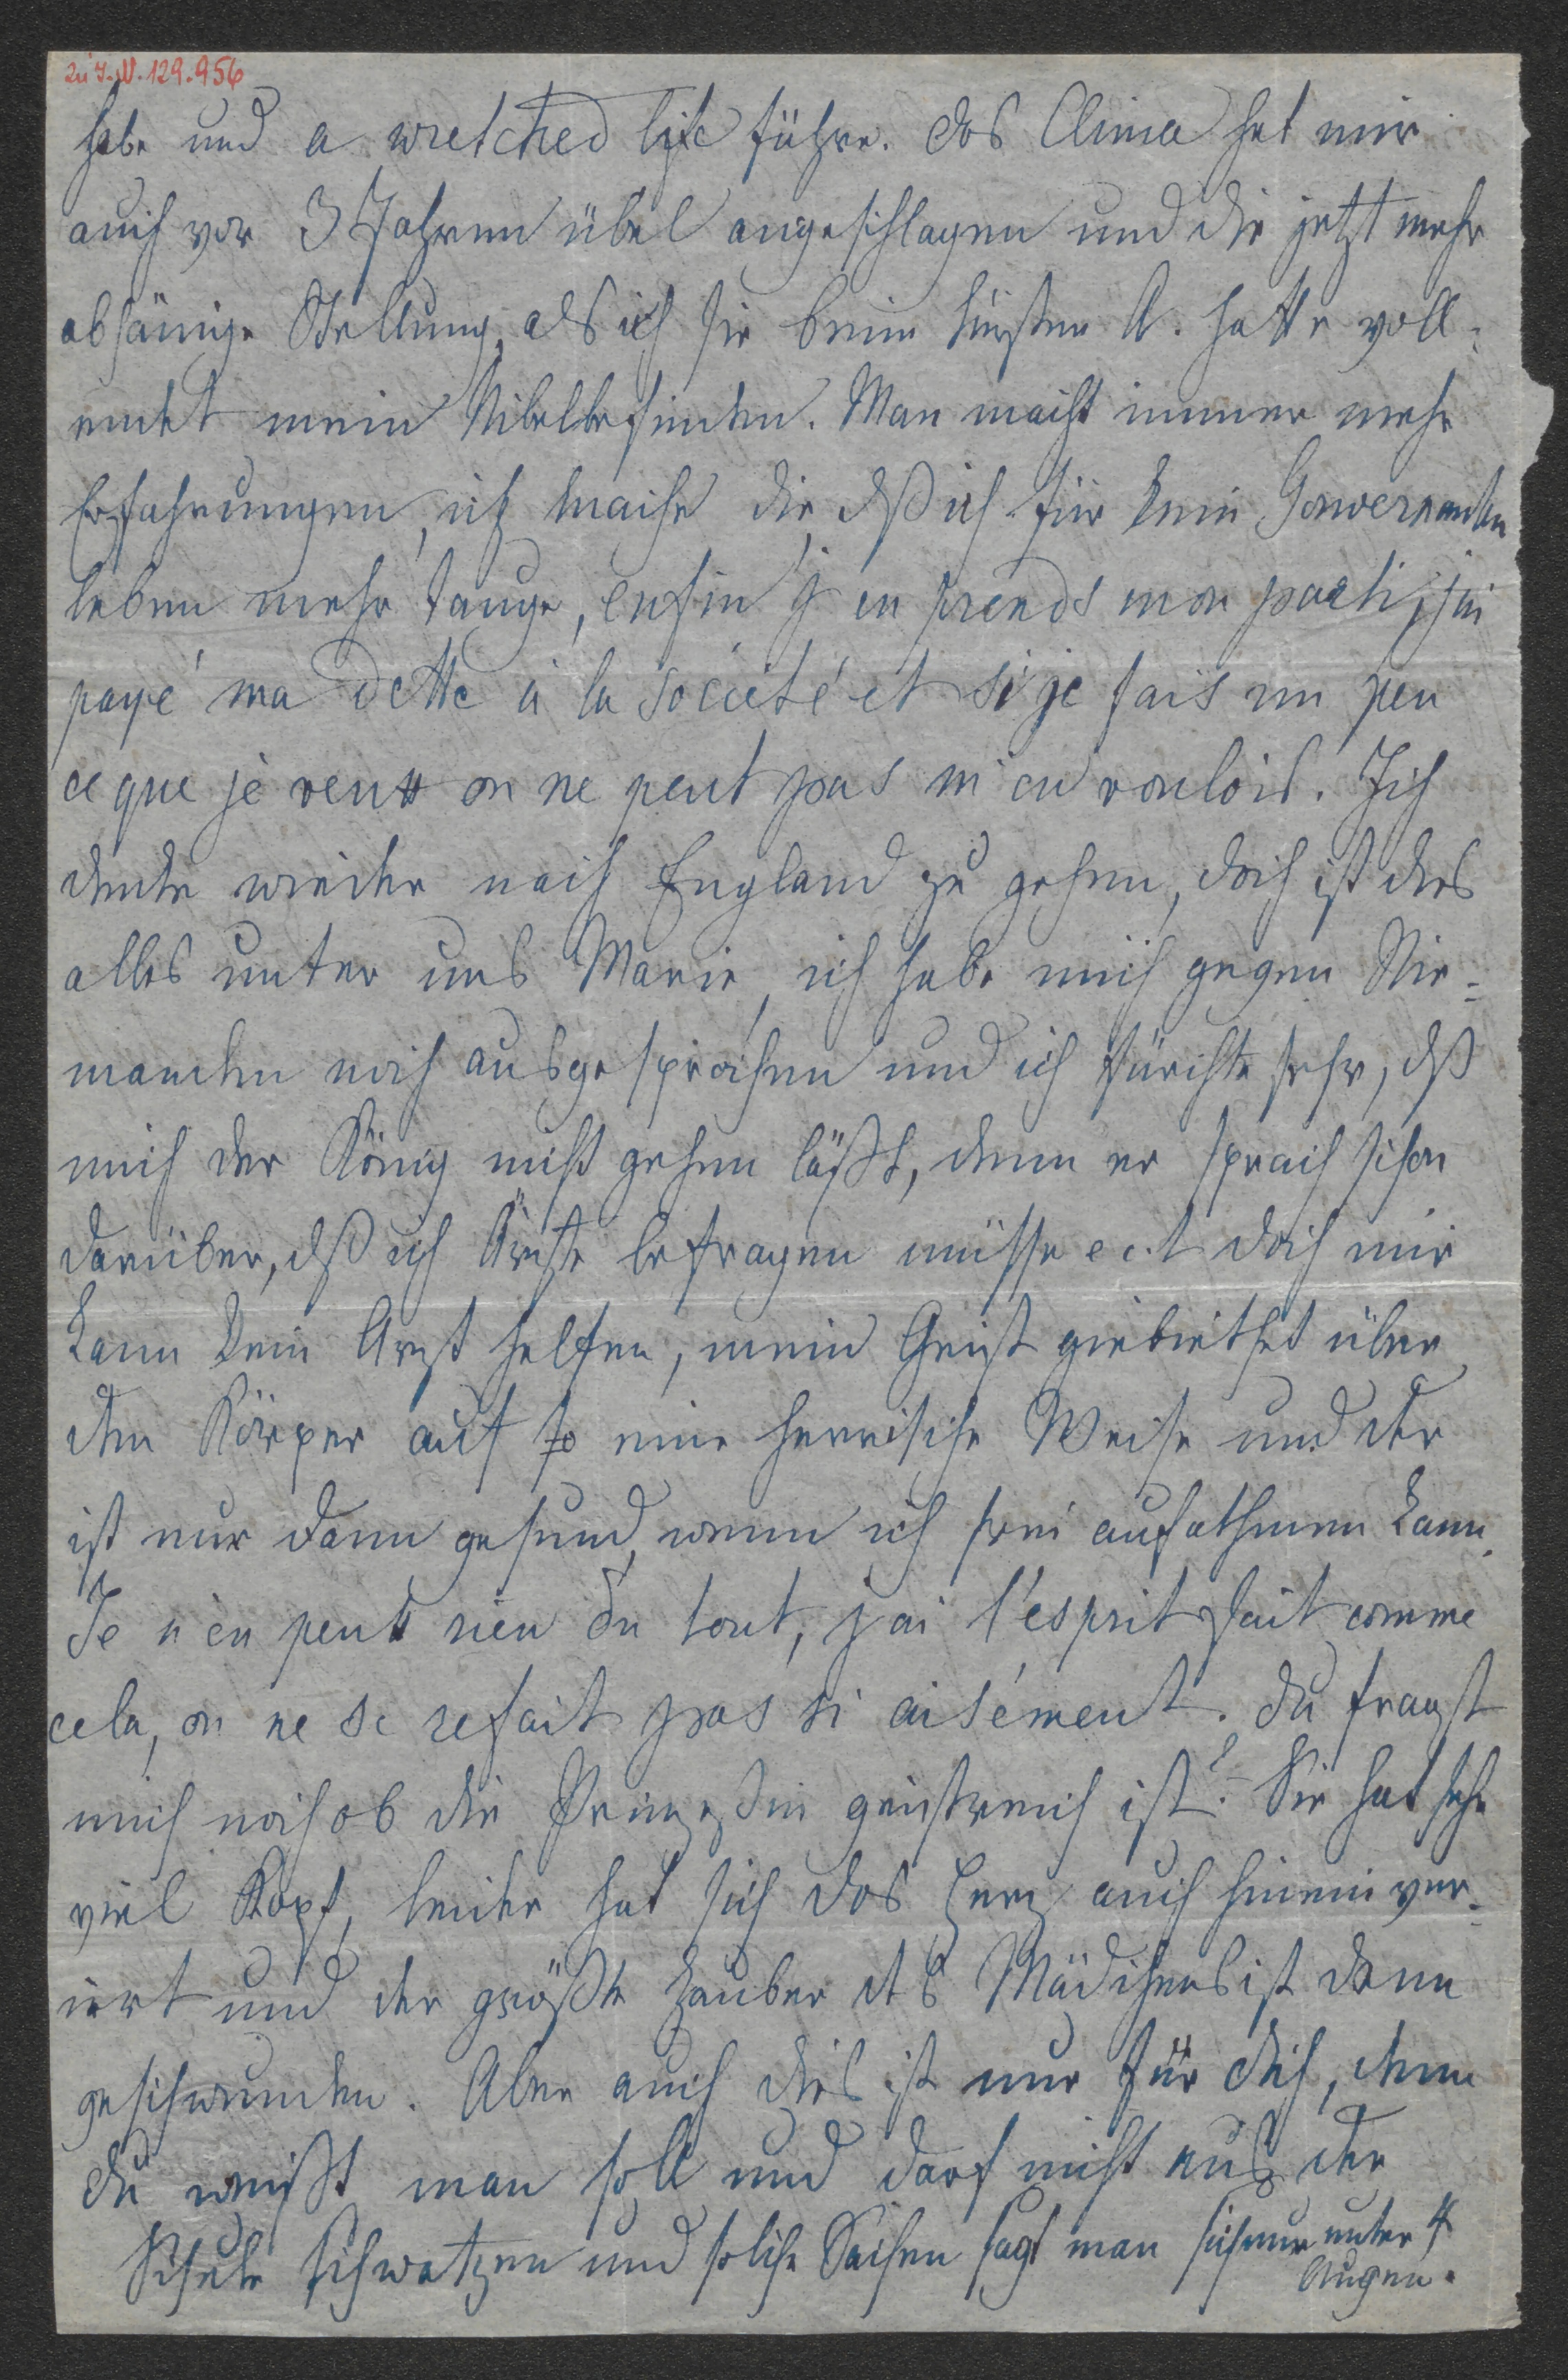 zu I.N. 129.956
habe und a wretched life führe. Das Clima hat mir
auch vor 3 Jahren übel angeschlagen und die jetzt mehr
abhänige Stellung, als ich sie beim Fürsten A. hatte voll-
endet mein Uibelbefinden. Man macht immer mehr
Erfahrungen, ich mache die, dß ich für kein Gouvernanten
leben mehr tauge, enfin j'en prends mon parti, j'ai
payé ma dette à la société et si je fais un peu
ce que je veux on ne peut pas m'en vouloir. Ich
denke wieder nach England zu gehen, doch ist dies
alles unter uns Marie, ich habe mich gegen Nie-
manden noch ausgesprochen und ich fürchte sehr, dß
mich der König nicht gehen läßt, denn er sprach schon
darüber, dß ich Ärzte befragen müsse ect doch mir
kann kein Arzt helfen, mein Geist giebiethet über
den Körper auf so eine herrische Weise und der
ist nur dann gesund, wenn ich frei aufathmen kann.
Je n'en peux rien du tout, j'ai l'esprit fait comme
cela, on ne se refait pas si aisément. Du fragst
mich noch ob die Prinzeßin geistreich ist? Sie hat sehr
viel Kopf, leider hat sich das Herz auch hinein ver-
irrt und der größte Zauber des Mädchens ist dann
geschwunden. Aber auch dies ist nur für dich, denn
du weißt man soll und darf nicht aus der
Schule schwatzen und solche Sachen sagt man sich nur unter 4
Augen.